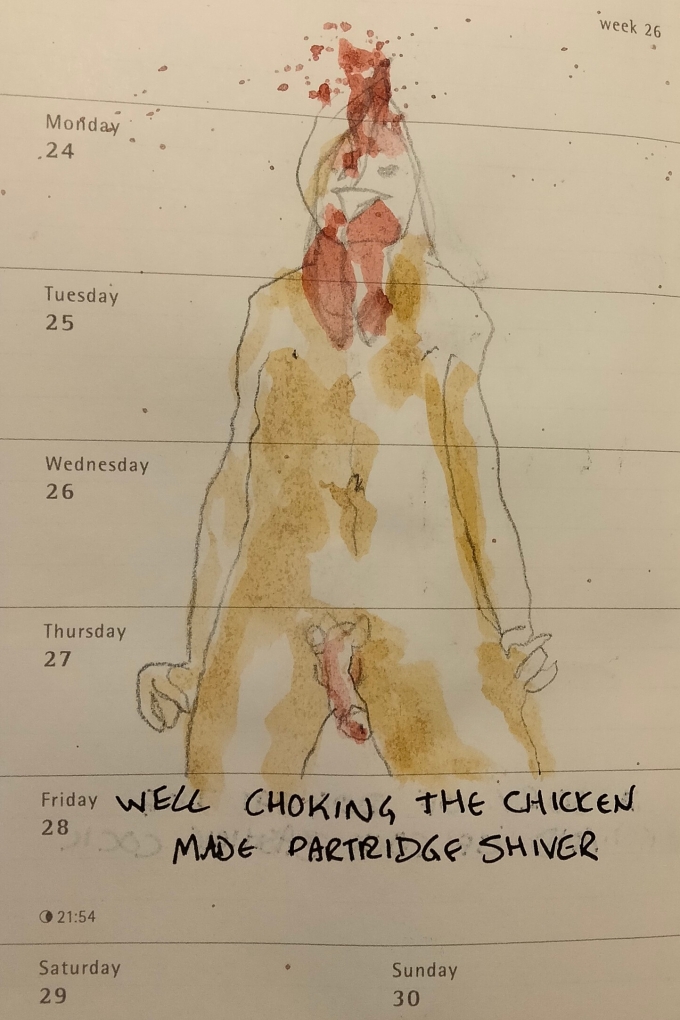 week 26
Monday
24
Tuesday
25
Wednesday
26
Thursday
27
Friday
28
WELL CHOKING THE CHICKEN
MADE PARTRIDGE SHIVER
21:54
Saturday
29
Sunday
30